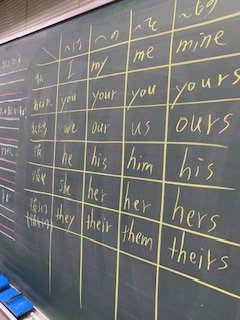 ～は ～の ～を ～もの
私 I my me mine
you your you yours
we our us ours
彼 he his him his
彼女 she her her hers
they their them theirs